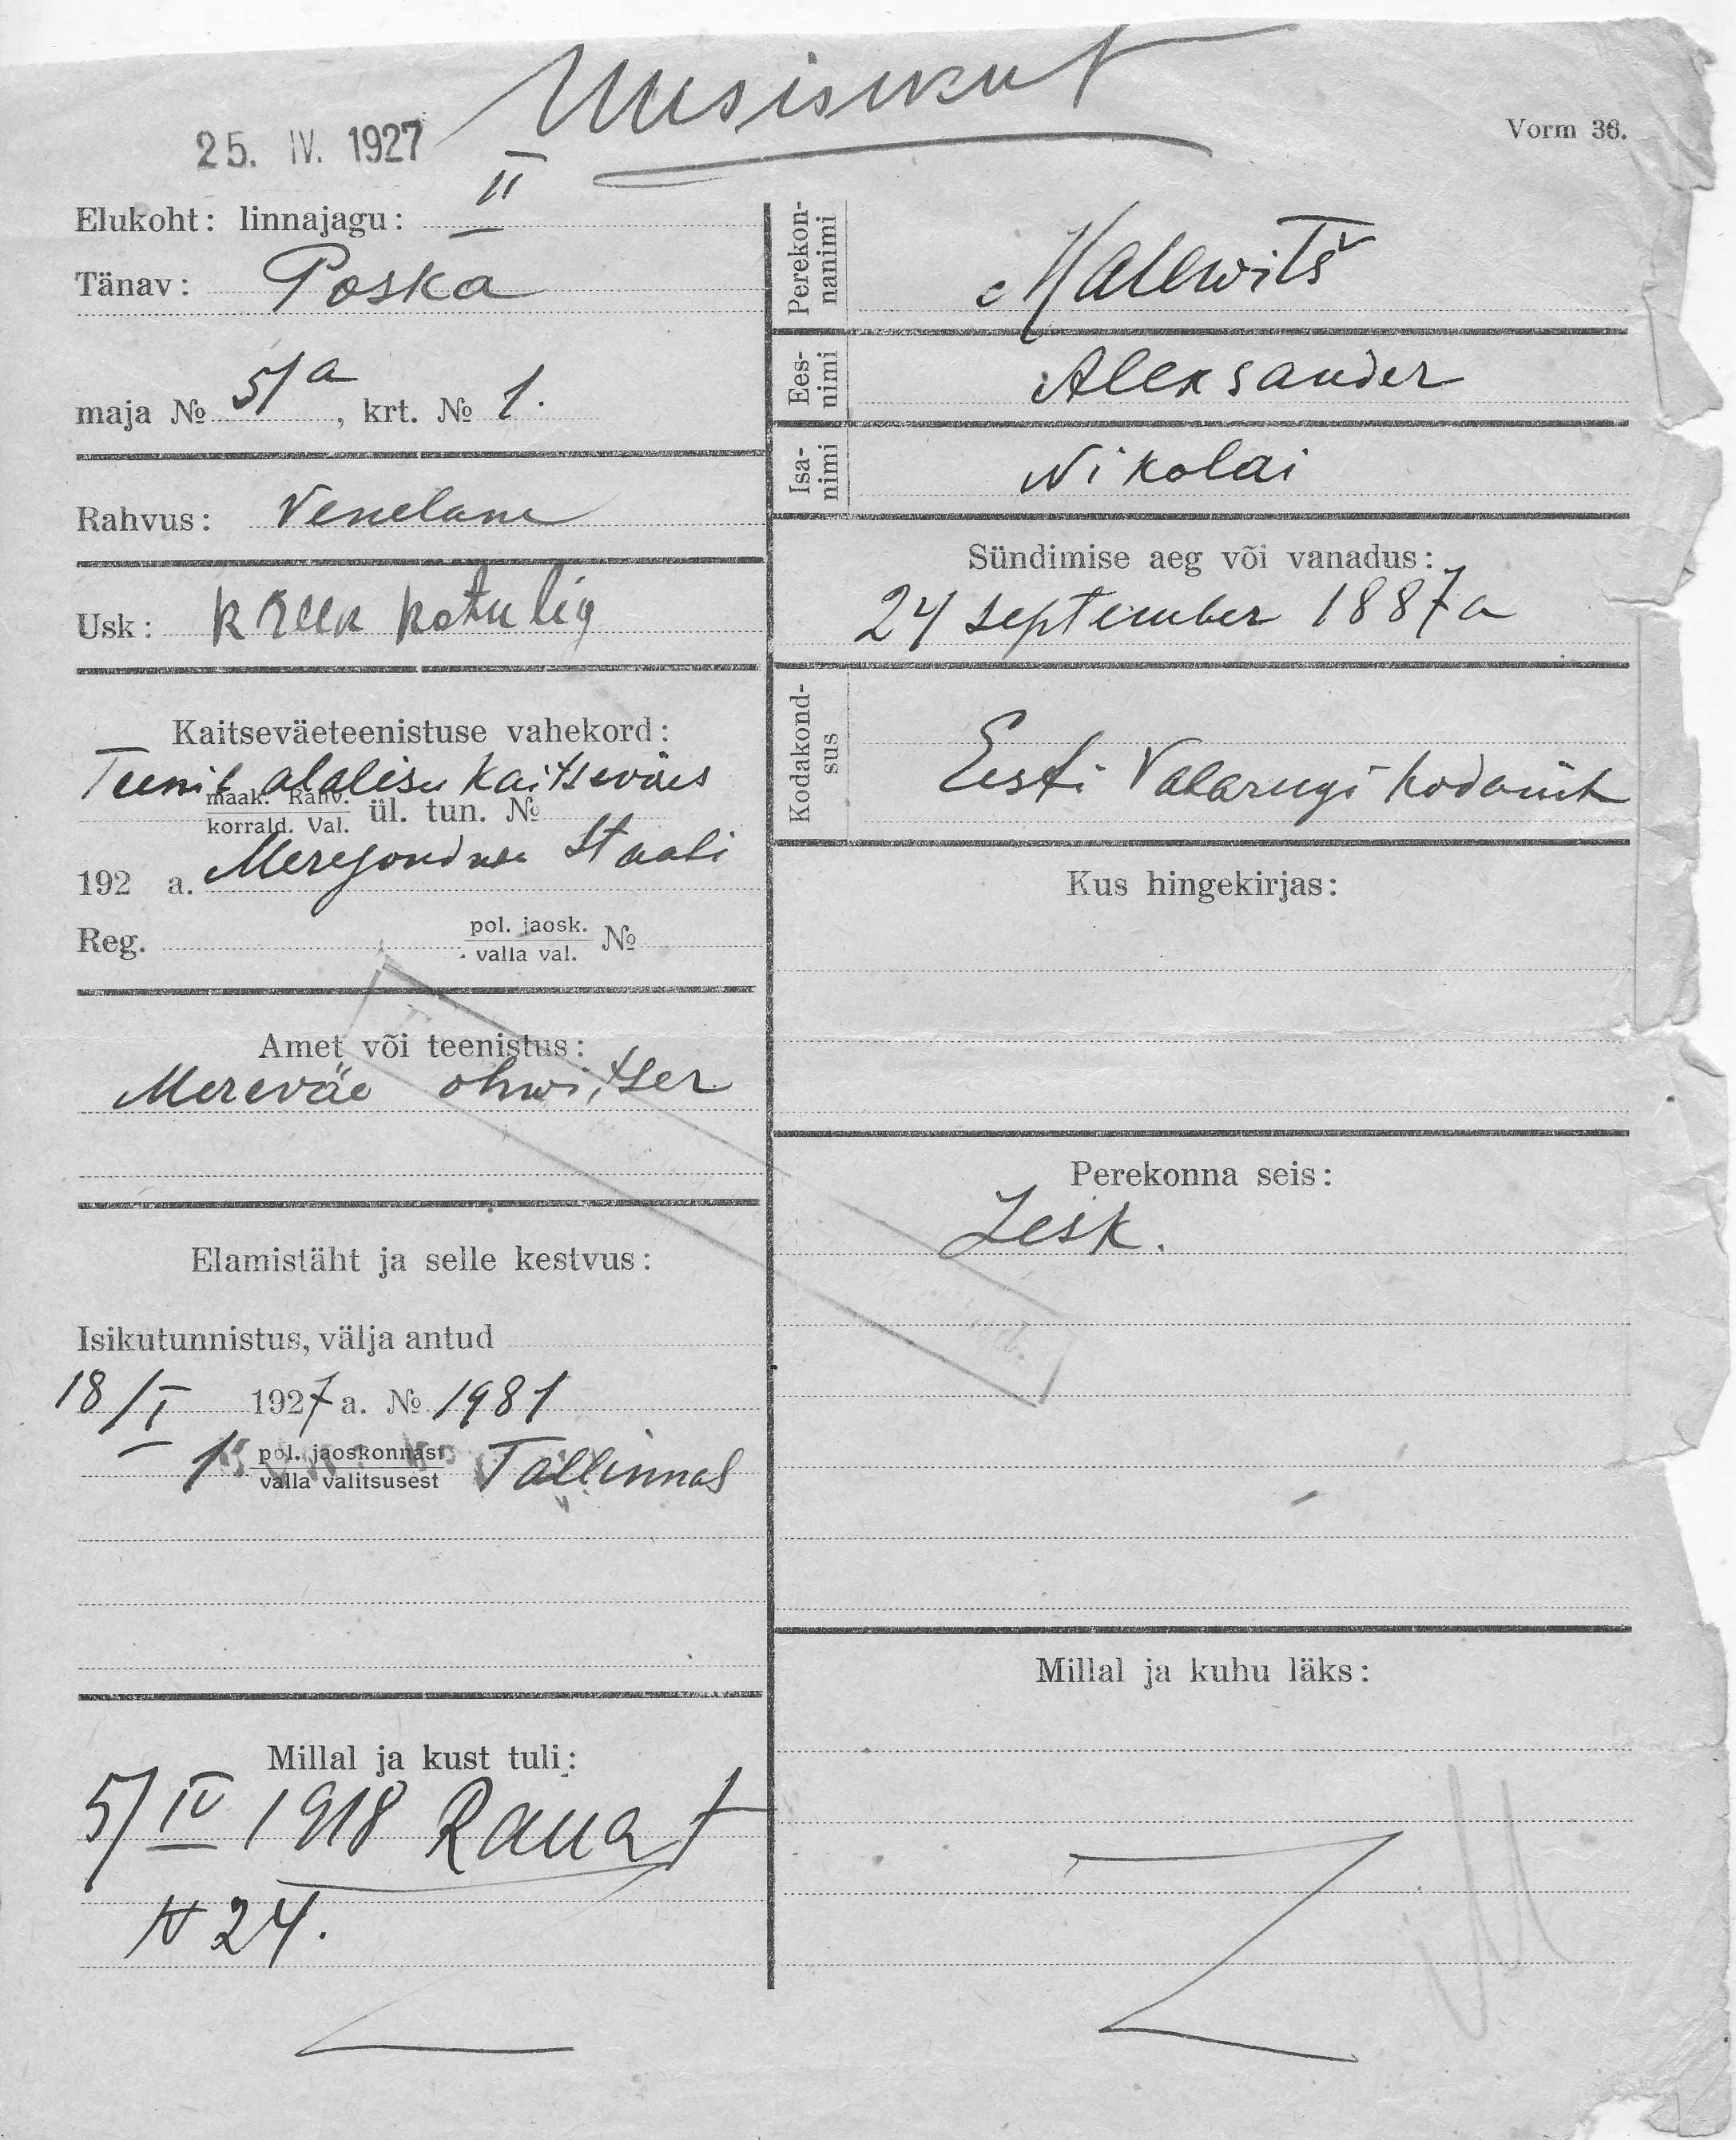 Uusisikut
25. IV. 1927
Vorm 36.
Elukoht: linnajagu: II
Tänav: Poska
maja № 51a, krt. № 1.
Rahvus: Venelane
Usk: kreek katulig
Kaitseväeteenistuse vahekord:
Teenib alalisen Kaitseväes
maak. Rahv.
korrald. Val. ül. tun. №
192 a. Merejoudude Staabi
Reg. pol. jaosk.
valla val. №
Amet või teenistus:
Mereväe ohwitser
Elamistäht ja selle kestvus:
Isikutunnistus, välja antud
18/I 1927 a. № 1981
1 pol. jaoskonnast
valla valitsusest Tallinnas
Millal ja kust tuli:
5/IV 1918 Raua t
N 24.
Perekon-
nanimi
Malewitš
Ees-
nimi
Aleksander
Isa-
nimi
Nikolai
Sündimise aeg või vanadus:
24 september 1887 a
Kodakond-
sus
Eesti Vabariigi kodanik
Kus hingekirjas:
Perekonna seis:
Lesk.
Millal ja kuhu läks: